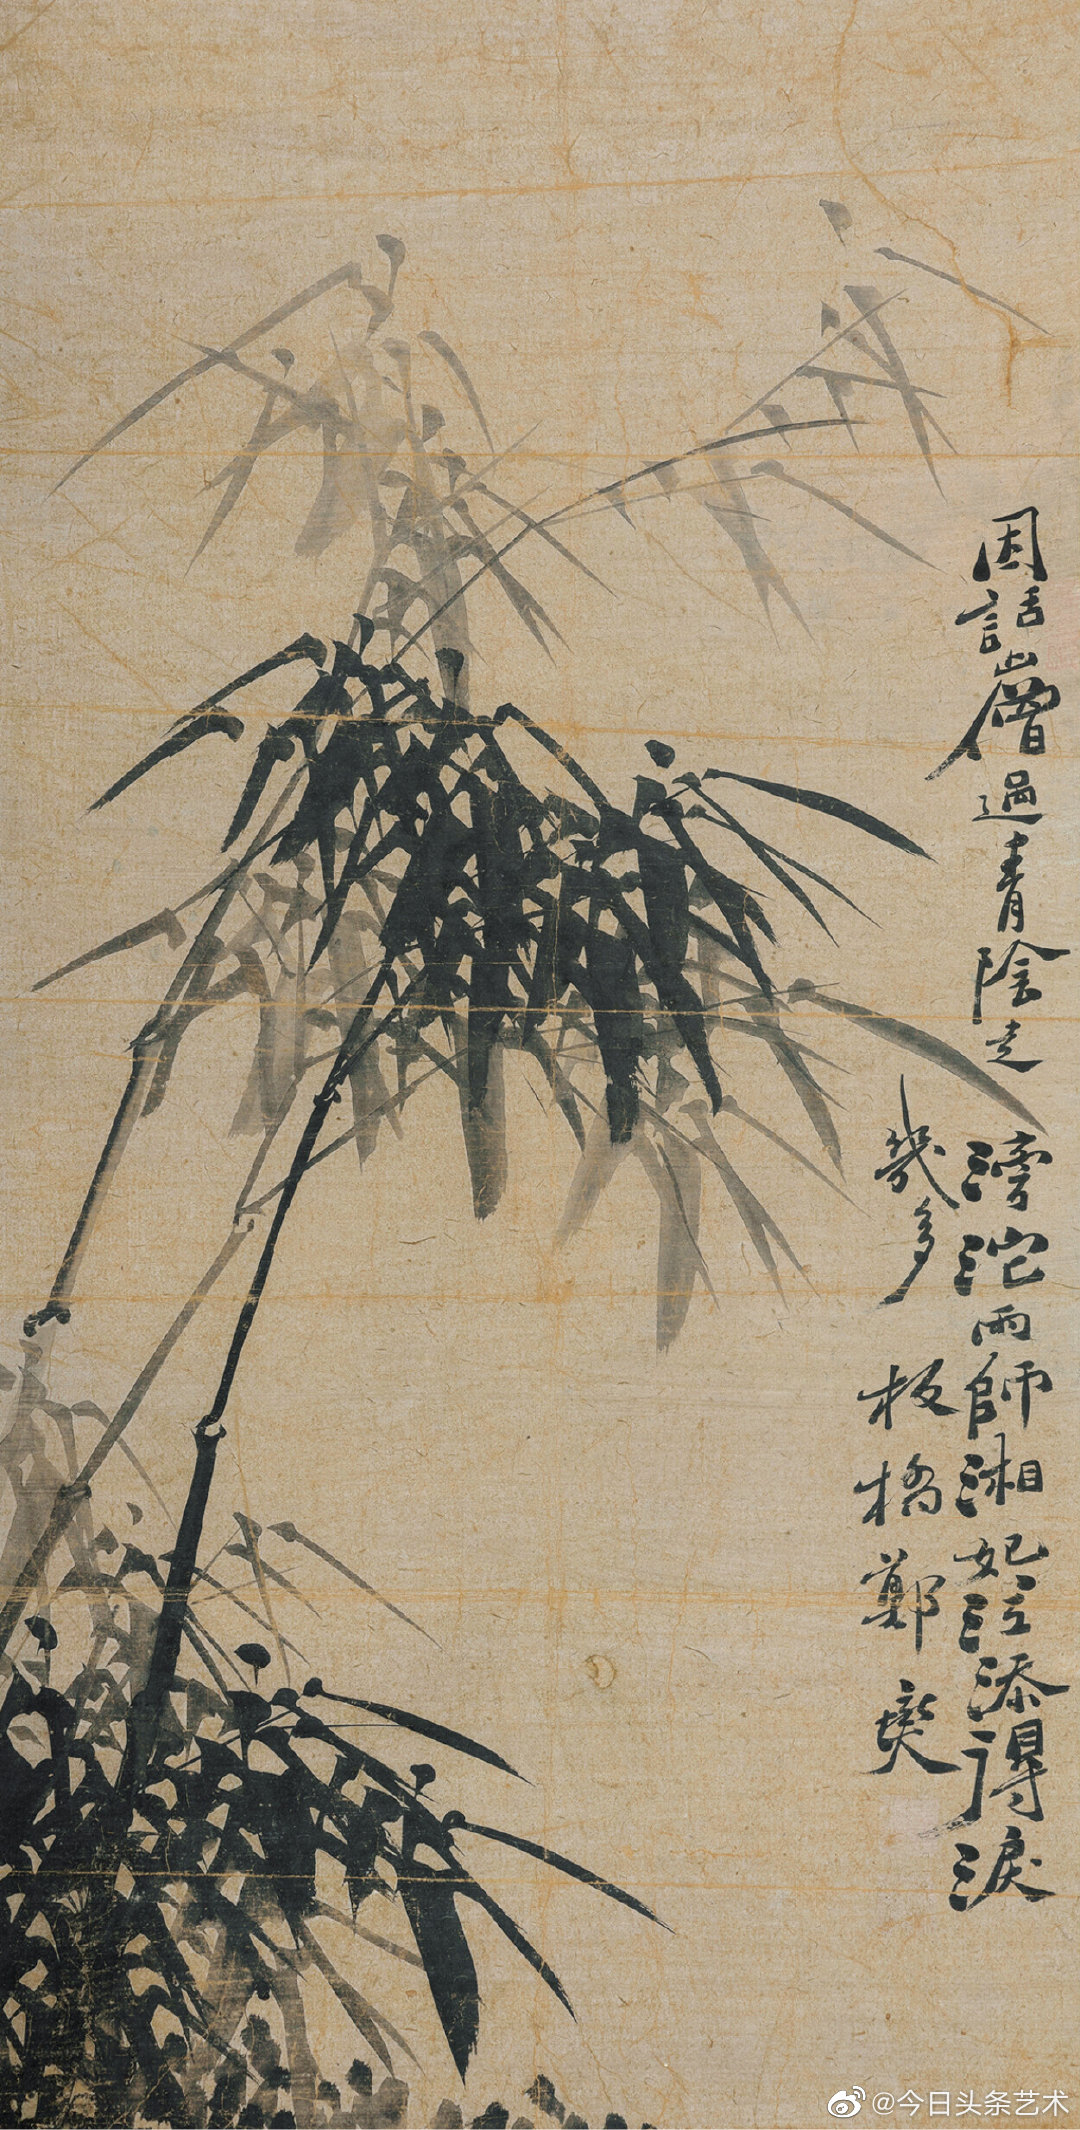 因話山僧過青陰走滂沱雨師湘妃泣添得淚
幾多 板橋鄭燮
@今日头条艺术